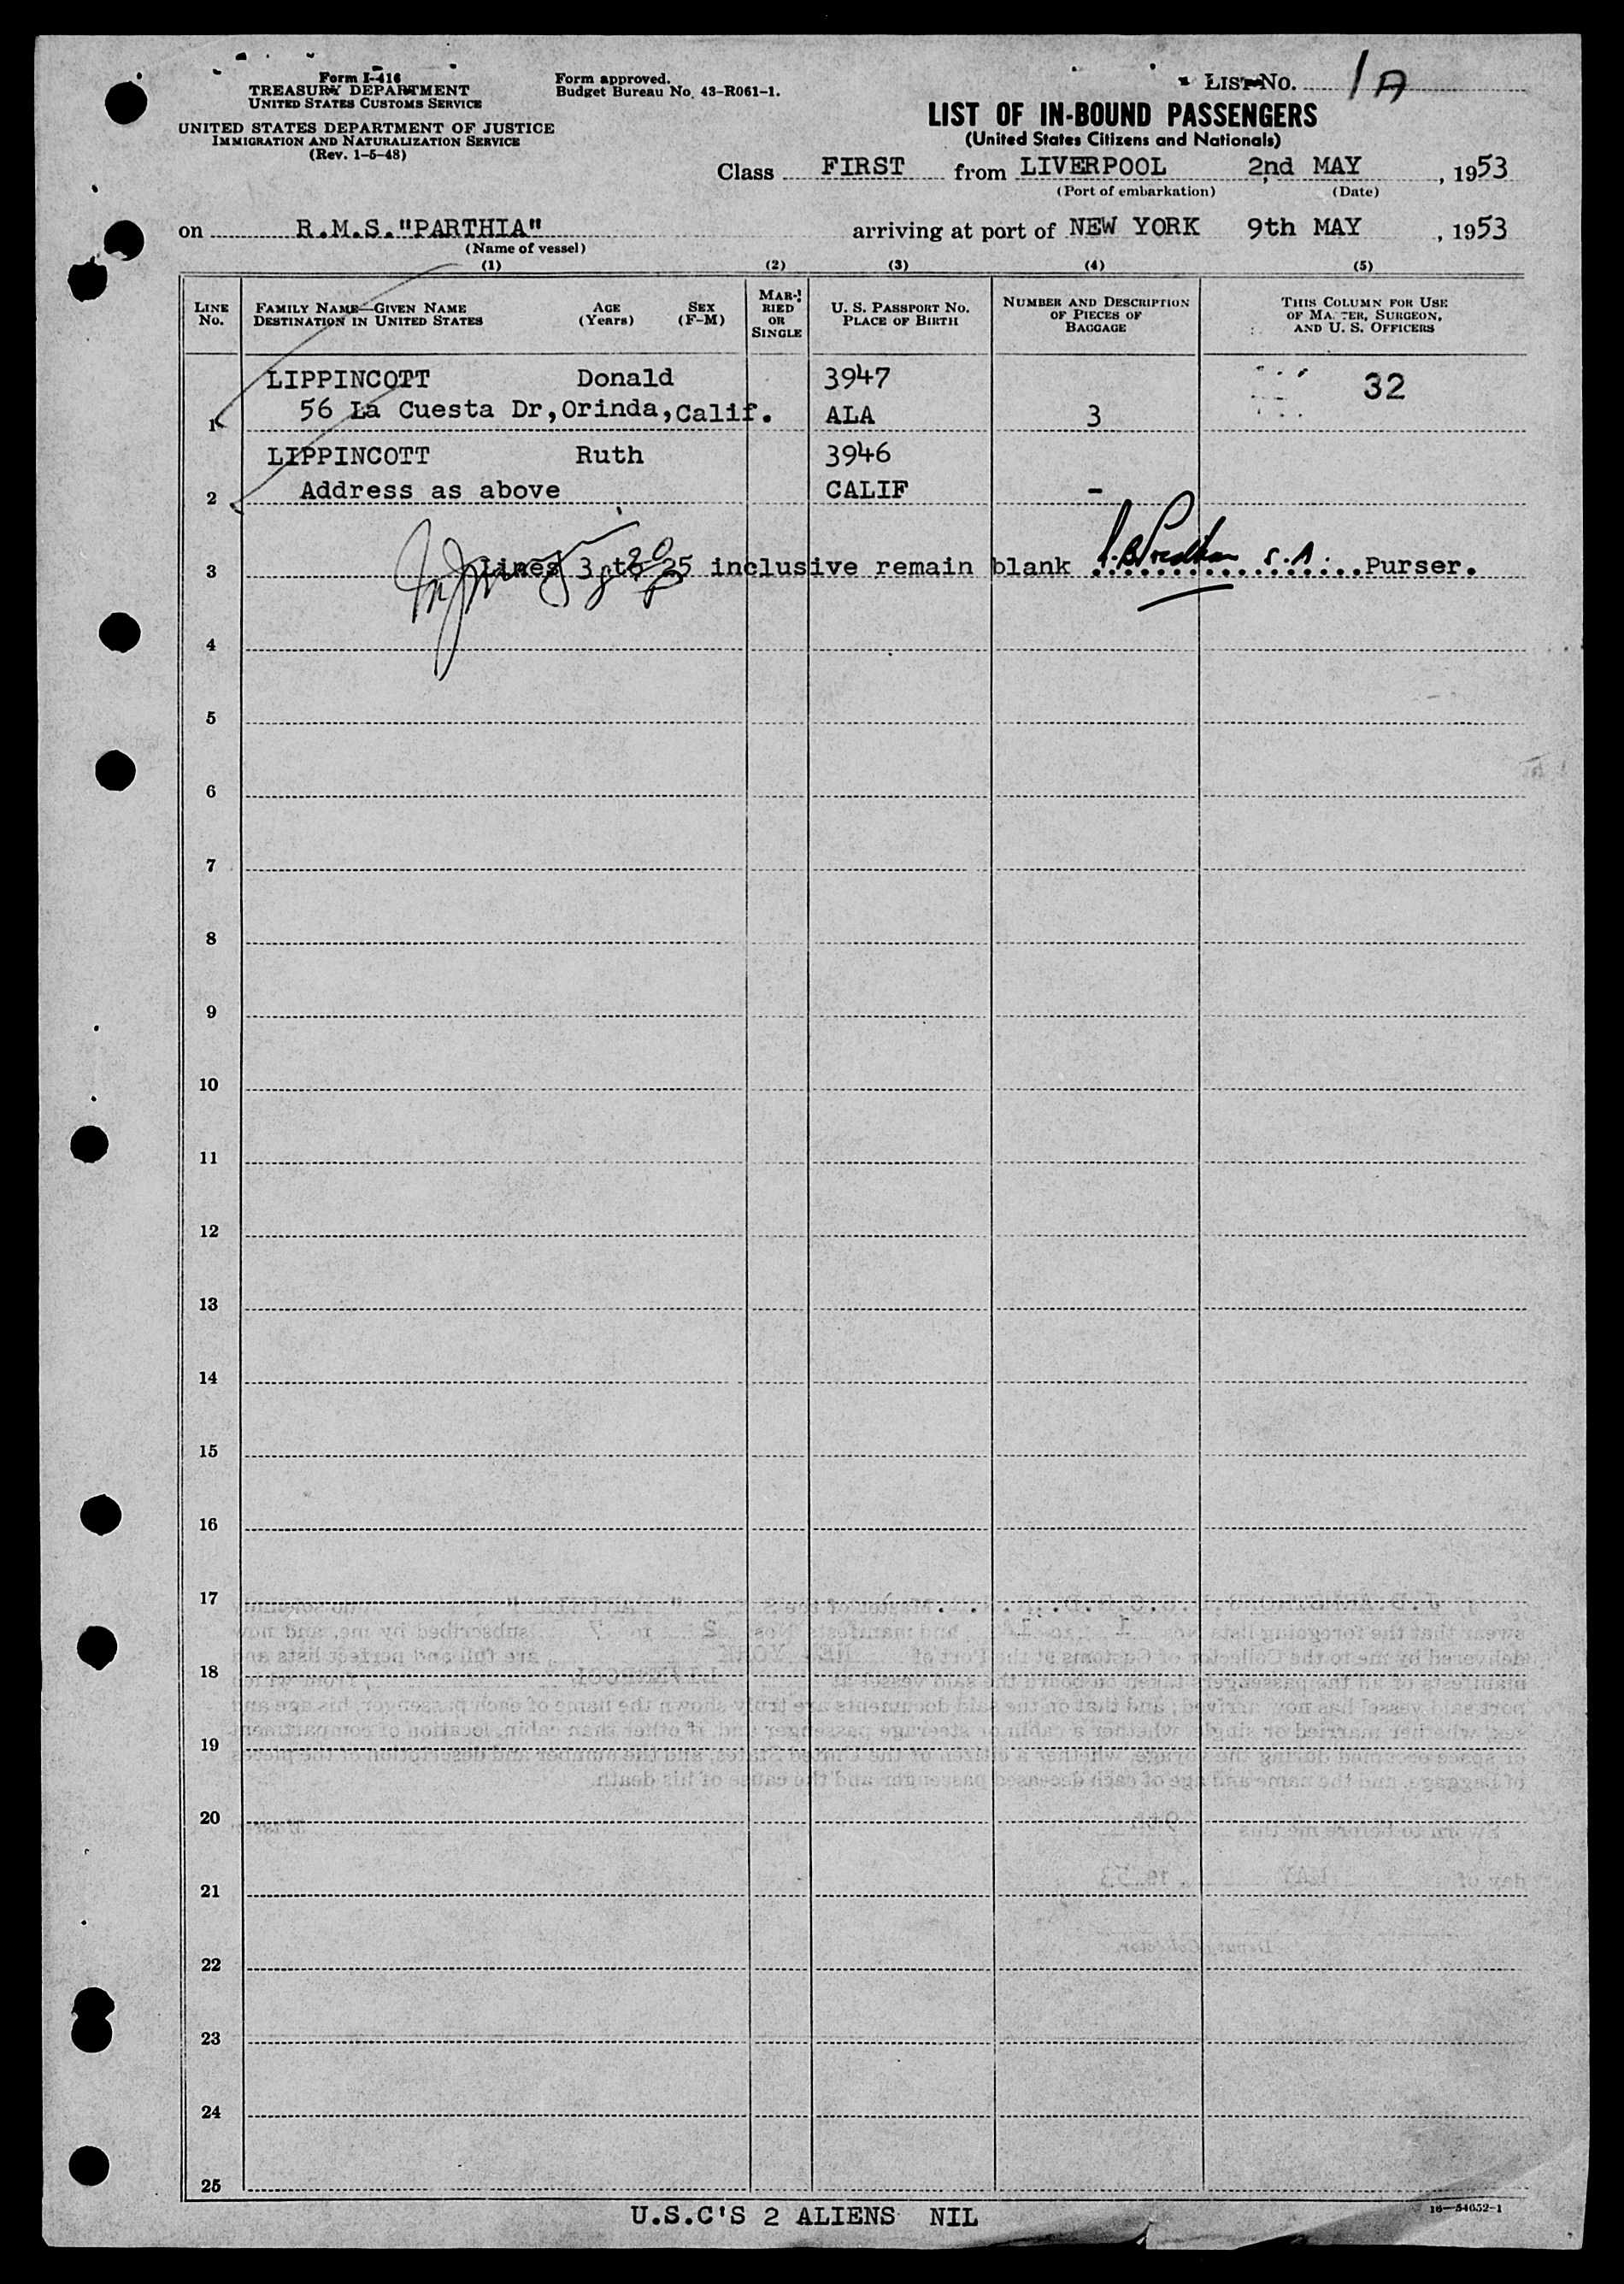 Form I-416
TREASURY DEPARTMENT
UNITED STATES CUSTOMS SERVICE
UNITED STATES DEPARTMENT OF JUSTICE
IMMIGRATION AND NATURALIZATION SERVICE
(Rev. 1-5-48)
Form approved.
Budget Bureau No. 43-R061-1.
LIST No. 1A
LIST OF IN-BOUND PASSENGERS
(United States Citizens and Nationals)
Class FIRST from LIVERPOOL 2nd MAY , 1953
(Port of embarkation) (Date)
on R.M.S."PARTHIA" arriving at port of NEW YORK 9th MAY , 1953
(Name of vessel)
(1) (2) (3) (4) (5)
LINE No.
FAMILY NAME—GIVEN NAME AGE (Years) SEX (F-M)
DESTINATION IN UNITED STATES
MARRIED OR SINGLE
U. S. PASSPORT No.
PLACE OF BIRTH
NUMBER AND DESCRIPTION
OF PIECES OF
BAGGAGE
THIS COLUMN FOR USE
OF MASTER, SURGEON,
AND U. S. OFFICERS
LIPPINCOTT Donald 3947 32
1 56 La Cuesta Dr,Orinda,Calif. ALA 3
LIPPINCOTT Ruth 3946
2 Address as above CALIF -
3 Lines 3 to 25 inclusive remain blank S.A. Purser.
4
5
6
7
8
9
10
11
12
13
14
15
16
17
18
19
20
21
22
23
24
25
U.S.C'S 2 ALIENS NIL
16—54052-1